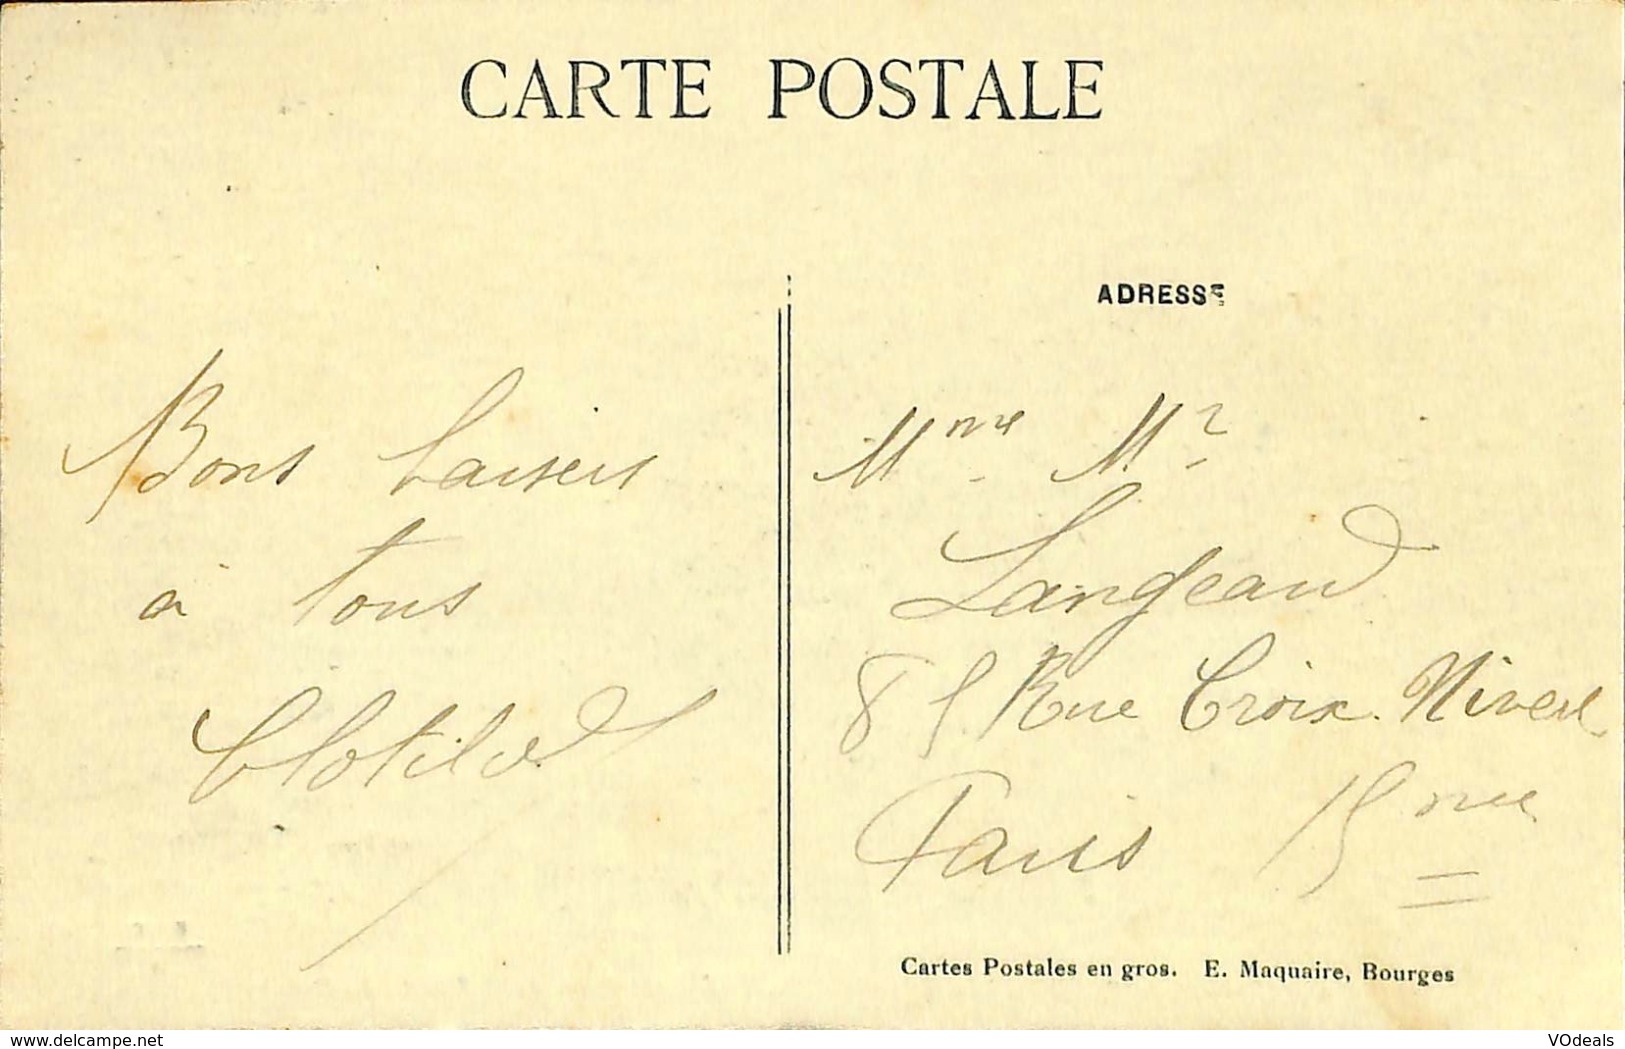 CARTE POSTALE
ADRESSE
Bons baisers
à tous
Clotilde
Mme Mr
Langeaud
85 Rue Croix. Nivert
Paris 15me
Cartes Postales en gros. E. Maquaire, Bourges
www.delcampe.net
VOdeals